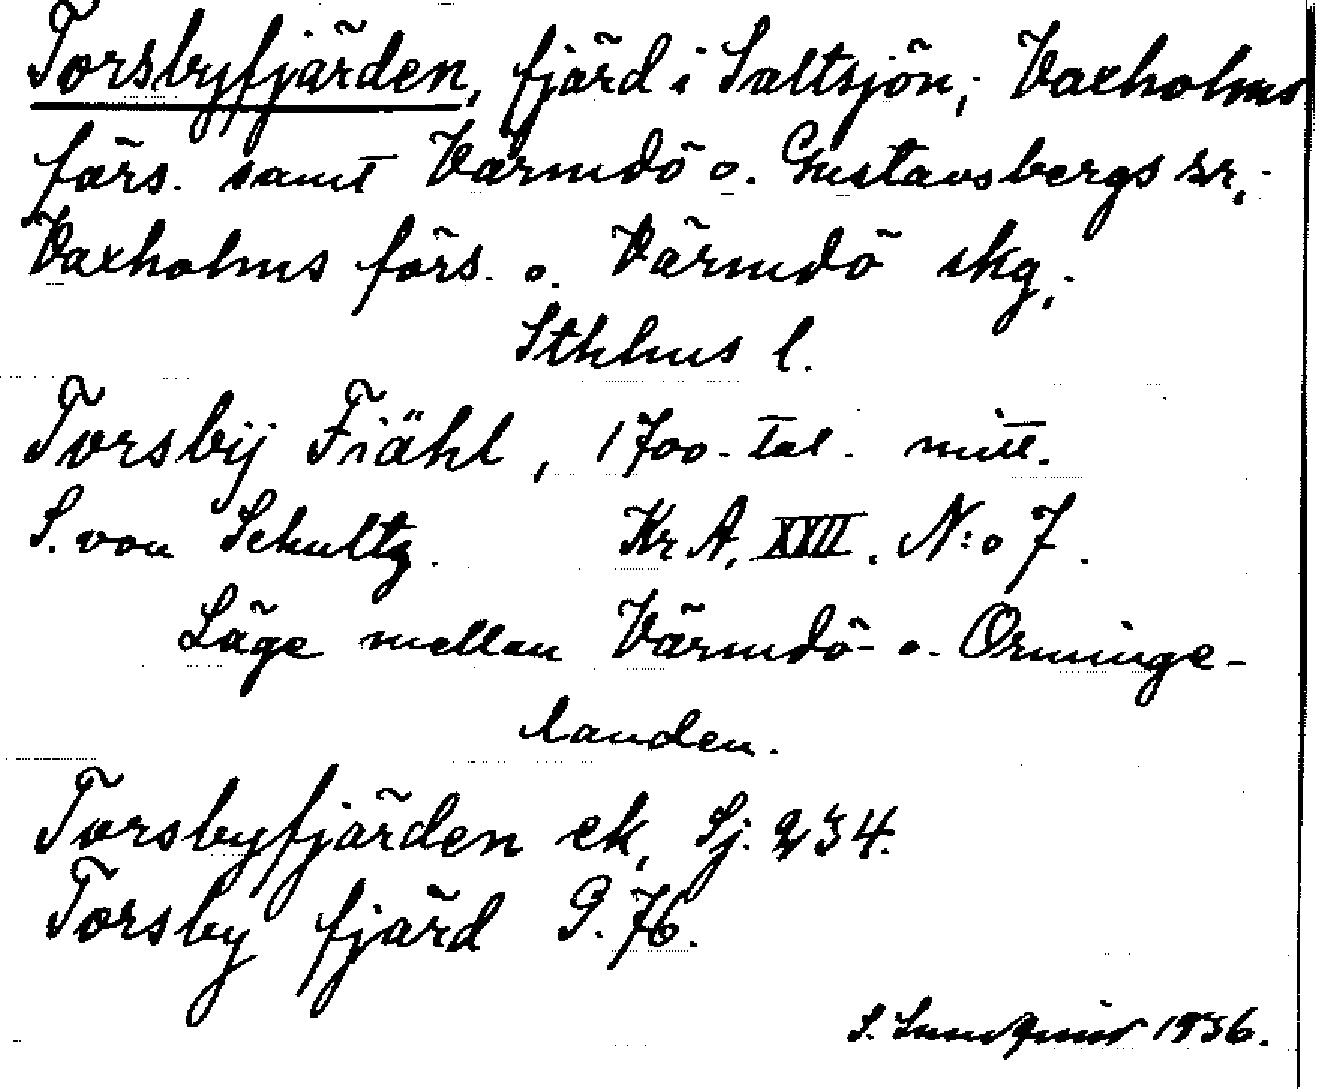 Torsbyfjärden, fjärd i Saltsjön; Vaxholms
förs. samt Värmdö o. Gustavsbergs sr,
Vaxholms förs. o. Värmdö skg,
Sthlms l.
Torsbÿ Fiähl, 1700-tal. mitt.
S. von Schultz. Kr A, XXII. N:o 7.
Läge mellan Värmdö- o. Orminge-
landen.
Torsbyfjärden ek, Sj. 234.
Torsby fjärd G. 76.
S. 1936.